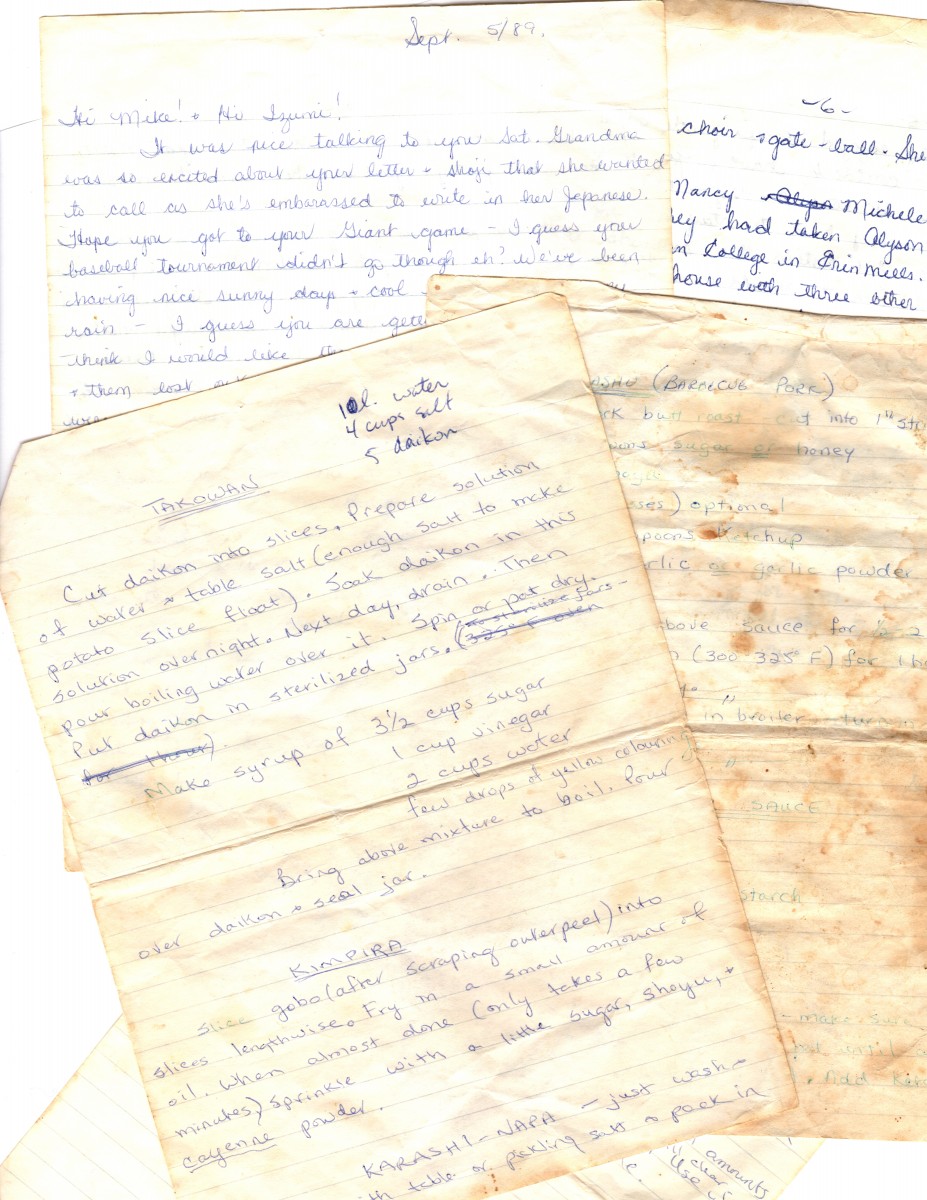 Sept. 5/89.
Hi Mike! & Hi Izumi!
It was nice talking to you Sat. Grandma
was so excited about your letter & shoji that she wanted
to call as she's embarassed to write in her Japanese.
Hope you got to your Giant game - I guess your
baseball tournament didn't go though eh? We've been
having nice sunny days & cool
rain - I guess you are
think I would like
& them lost
-6-
choir & gate-ball. She
Nancy Michele
had taken Alyson
College in Erin Mills.
house with three other
(BARBECUE PORK)
butt roast cut into 1"
sugar or honey
optional
Ketchup
or garlic powder
above sauce for 1/2 2
(300 325° F) for 1
"
in broiler - turn
"
SAUCE
starch
- make sure
until
Add
10 l. water
4 cups salt
5 daikon
TAKOWAN
Cut daikon into slices. Prepare solution
of water & table salt (enough salt to make
potato slice float). Soak daikon in this
solution overnight. Next day, drain. Then
pour boiling water over it. Spin or pat dry.
Put daikon in sterilized jars. (to sterilize jars -
325° F oven
for 1 hour).
Make syrup of 3 1/2 cups sugar
1 cup vinegar
2 cups water
few drops of yellow colouring
Bring above mixture to boil. Pour
over daikon & seal jar.
KIMPIRA
Slice gobo (after scraping outerpeel) into
slices lengthwise. Fry in a small amount of
oil. When almost done (only takes a few
minutes) sprinkle with a little sugar, shoyu, &
cayenne powder.
KARASHI-NAPA - just wash &
with table or pickling salt & pack in
amounts
Use